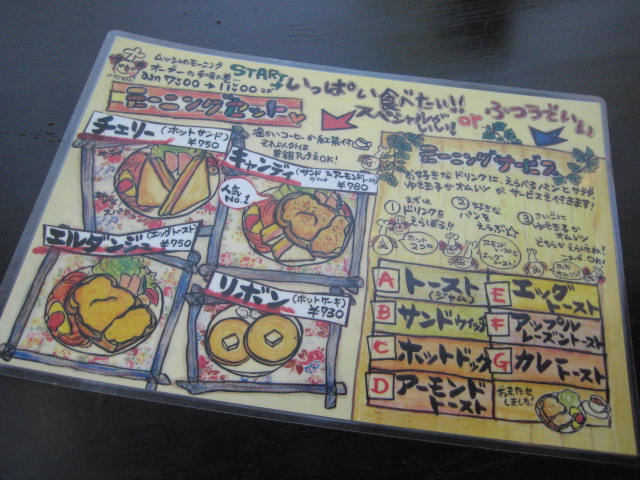 ムッシュのモーニング
オーダーの手順の巻…
am 7:00→11:00
START
いっぱい食べたい!!
スペシャルが
いい!
or
ふつうでいい
モーニングセット
温かいコーヒーか紅茶付
それ以外は
差額プラスでOK!
チェリー(ホットサンド)
¥750
キャンディ
¥780
人気
No.1
エルダンジ(エッグトースト)
¥750
リボン(ホットケーキ)
¥730
モーニングサービス
お好きなドリンクに えらべるパンとサラダ
ゆで玉子かオムレツ が サービスで付きます!
① まずは
ドリンクを
えらぼう!!
② お好きな
パンを
えらぶ☆
③ さいごに
ゆで玉子か
オムレツ
どちらか えらんだね!
A トースト
(ジャム)
B サンドウィッチ
C ホットドック
D アーモンド
トースト
E エッグ
トースト
F アップル
レーズントースト
G カレートースト
おまたせ
しました!